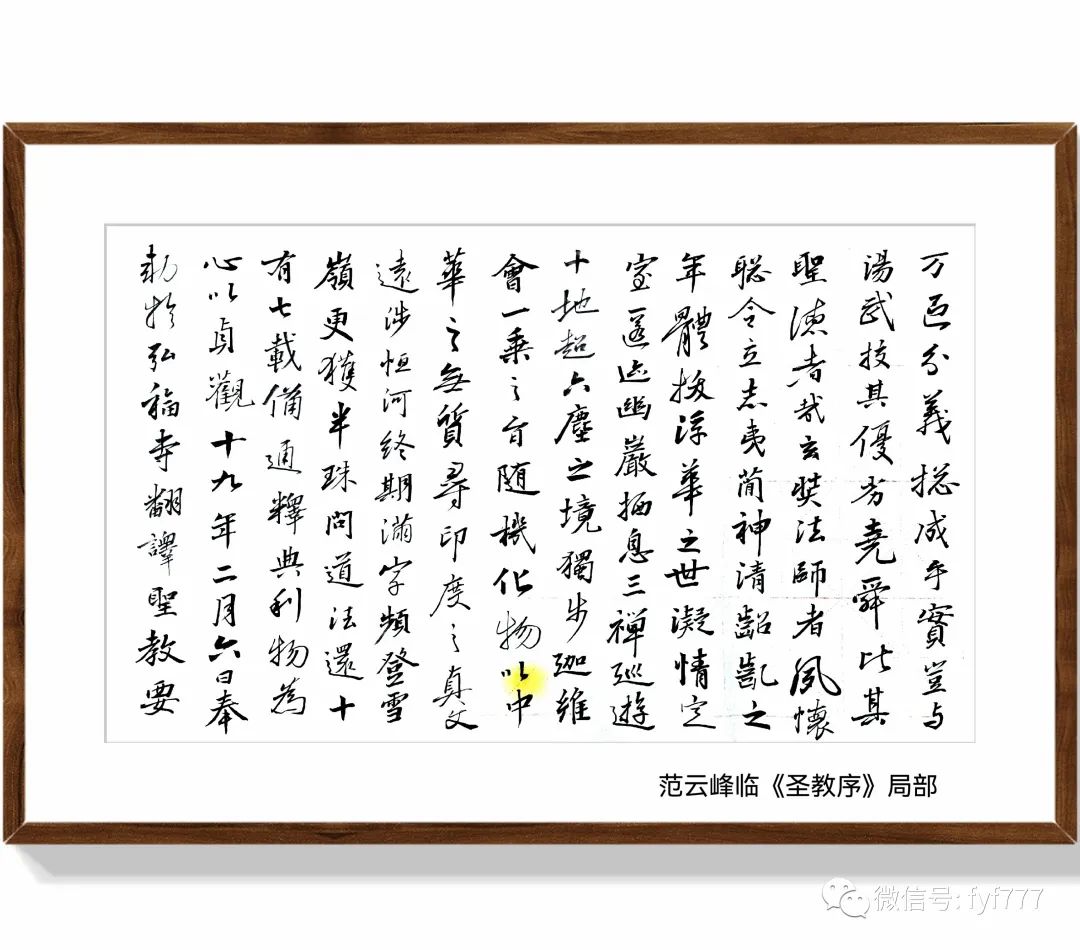 万區分義揔成乎實豈与
湯武挍其優劣堯舜比其
聖德者哉玄奘法師者夙懷
聡令立志夷簡神清齠齓之
年體拔浮華之世凝情定
室匿迹幽巖栖息三禪巡遊
十地超六塵之境獨步迦維
會一乘之旨随機化物以中
華之無質尋印度之真文
遠涉恒河終期滿字頻登雪
嶺更獲半珠問道法還十
有七載備通釋典利物為
心以貞觀十九年二月六日奉
勑於弘福寺翻譯聖教要
范云峰临《圣教序》局部
微信号: fyf777